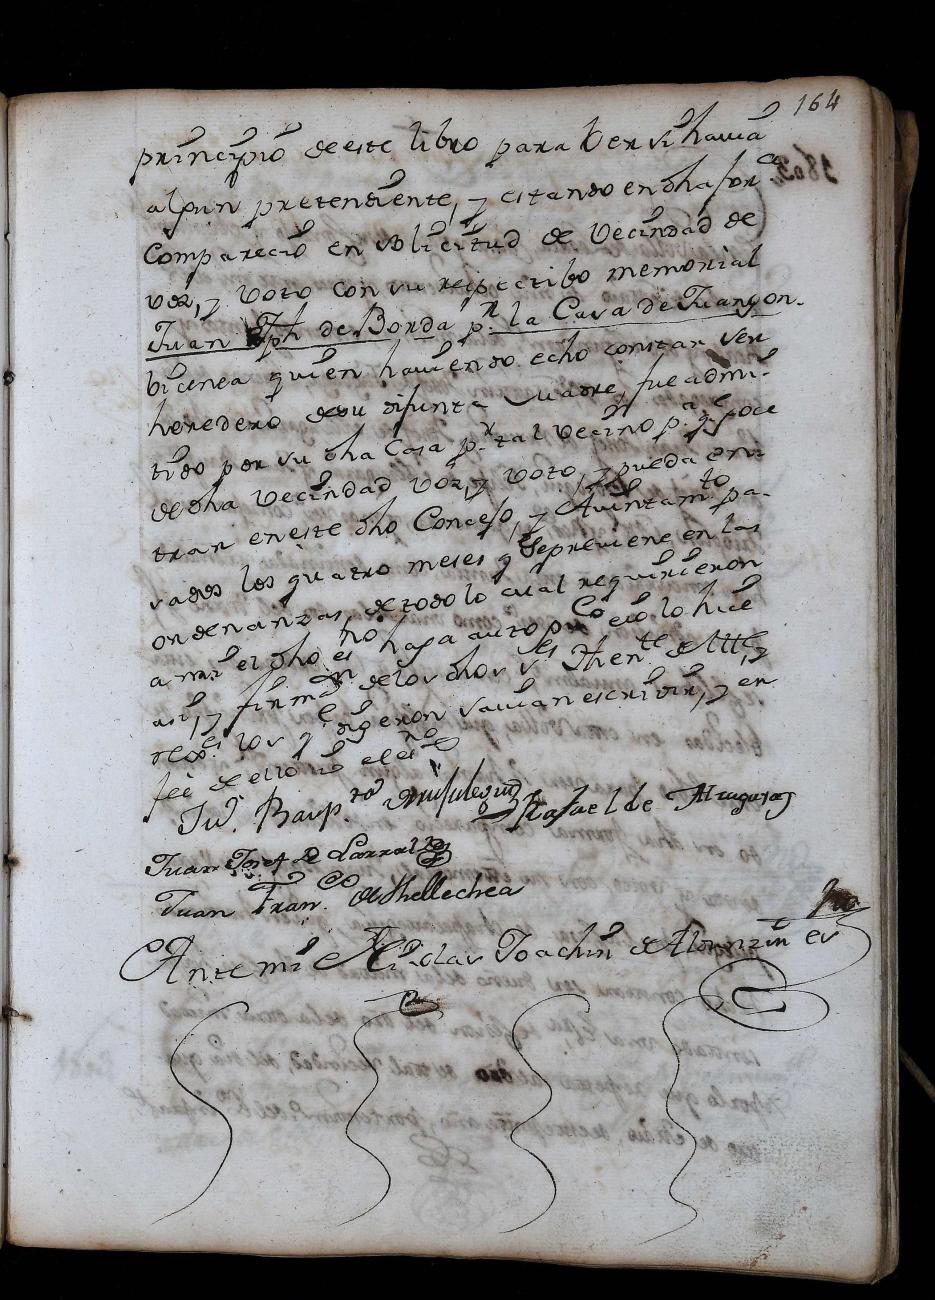 164
principio de este libro para ver si havia
algun pretendiente, y estando en dha forma
Comparecio en solicitud de Vecindad de
voz, y voto con su respectibo memorial
Juan Jph de Borda pr. la Casa de Juangon.
bicenea quien haviendo echo constar ser
heredero de su difunta Madre, fue admi-
tido por su dha Casa pr. tal Vecino pa. qe goce
de dha Vecindad voz, y voto, y pueda en-
trar en este dho Concejo, y Aiuntamto pa-
sados los quatro meses q Se previene en las
ordenanzas, de todo lo cual requirieron
a mi el dho esno haga auto pco e io lo hice
asi, y firmn de los dhos ss Thente de Alle, y
reges los qe digeron savian escrivir, y en
fee de ello io el esno
Ju. Baupta Rafael de
Juan Josef de Larralde
Juan Franco de Thellechea
Ante mi Nicolas Joachin de Alduncin es